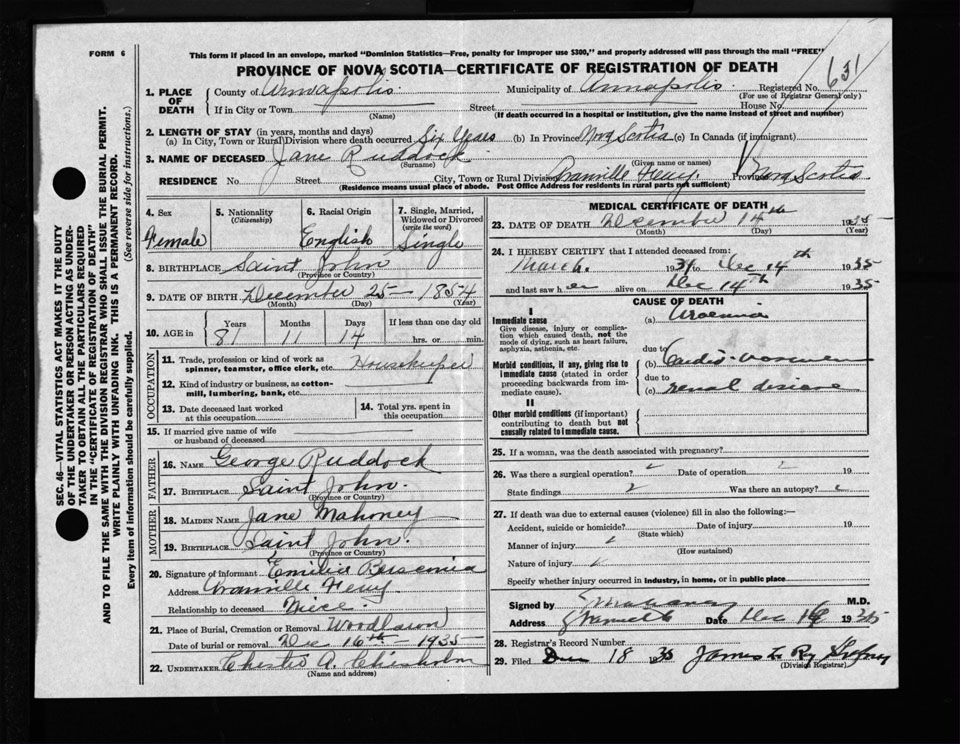 FORM 6
This form if placed in an envelope, marked "Dominion Statistics—Free, penalty for improper use $300," and properly addressed will pass through the mail "FREE"
PROVINCE OF NOVA SCOTIA—CERTIFICATE OF REGISTRATION OF DEATH
631
1. PLACE OF DEATH
County of Annapolis. Municipality of Annapolis Registered No.
(For use of Registrar General only)
If in City or Town (Name) Street House No.
(If death occurred in a hospital or institution, give the name instead of street and number)
2. LENGTH OF STAY (in years, months and days)
(a) In City, Town or Rural Division where death occurred Six Years (b) In Province Nova Scotia (c) In Canada (if immigrant)
3. NAME OF DECEASED Jane Ruddock
(Surname) (Given name or names)
RESIDENCE No. Street City, Town or Rural Division Granville Ferry Province Nova Scotia
(Residence means usual place of abode. Post Office Address for residents in rural parts not sufficient)
4. Sex Female
5. Nationality (Citizenship)
6. Racial Origin English
7. Single, Married, Widowed or Divorced (write the word) Single
8. BIRTHPLACE Saint John
(Province or Country)
9. DATE OF BIRTH December 25 1854
(Month) (Day) (Year)
10. AGE in Years 81 Months 11 Days 14 If less than one day old hrs. or min.
OCCUPATION
11. Trade, profession or kind of work as spinner, teamster, office clerk, etc. Housekeeper
12. Kind of industry or business, as cotton-mill, lumbering, bank, etc.
13. Date deceased last worked at this occupation
14. Total yrs. spent in this occupation
15. If married give name of wife or husband of deceased
FATHER
16. NAME George Ruddock
17. BIRTHPLACE Saint John.
(Province or Country)
MOTHER
18. MAIDEN NAME Jane Mahoney
19. BIRTHPLACE Saint John.
(Province or Country)
20. Signature of informant Emilia
Address Granville Ferry
Relationship to deceased Niece.
21. Place of Burial, Cremation or Removal Woodlawn
Date of burial or removal Dec 16th 1935
22. UNDERTAKER Chester A. Chisholm
(Name and address)
MEDICAL CERTIFICATE OF DEATH
23. DATE OF DEATH December 14th 1935
(Month) (Day) (Year)
24. I HEREBY CERTIFY that I attended deceased from:
March. 1934 to Dec 14th 1935
and last saw her alive on Dec 14th 1935
CAUSE OF DEATH
I
Immediate cause
Give disease, injury or complication which caused death, not the mode of dying, such as heart failure, asphyxia, asthenia, etc.
(a) Uraemia
due to
Morbid conditions, if any, giving rise to immediate cause (stated in order proceeding backwards from immediate cause).
(b) Cardio-
due to
(c) renal disease
II
Other morbid conditions (if important) contributing to death but not causally related to immediate cause.
25. If a woman, was the death associated with pregnancy?
26. Was there a surgical operation? Date of operation 19
State findings Was there an autopsy?
27. If death was due to external causes (violence) fill in also the following:—
Accident, suicide or homicide? Date of injury 19
(State which)
Manner of injury
(How sustained)
Nature of injury
Specify whether injury occurred in industry, in home, or in public place
Signed by M.D.
Address Date Dec 16 1935
28. Registrar's Record Number
29. Filed Dec 18 1935 James
(Division Registrar)
SEC. 46—VITAL STATISTICS ACT MAKES IT THE DUTY OF THE UNDERTAKER OR PERSON ACTING AS UNDERTAKER TO OBTAIN ALL THE PARTICULARS REQUIRED IN THE "CERTIFICATE OF REGISTRATION OF DEATH" AND TO FILE THE SAME WITH THE DIVISION REGISTRAR WHO SHALL ISSUE THE BURIAL PERMIT.
WRITE PLAINLY WITH UNFADING INK. THIS IS A PERMANENT RECORD.
Every item of information should be carefully supplied. (See reverse side for instructions.)